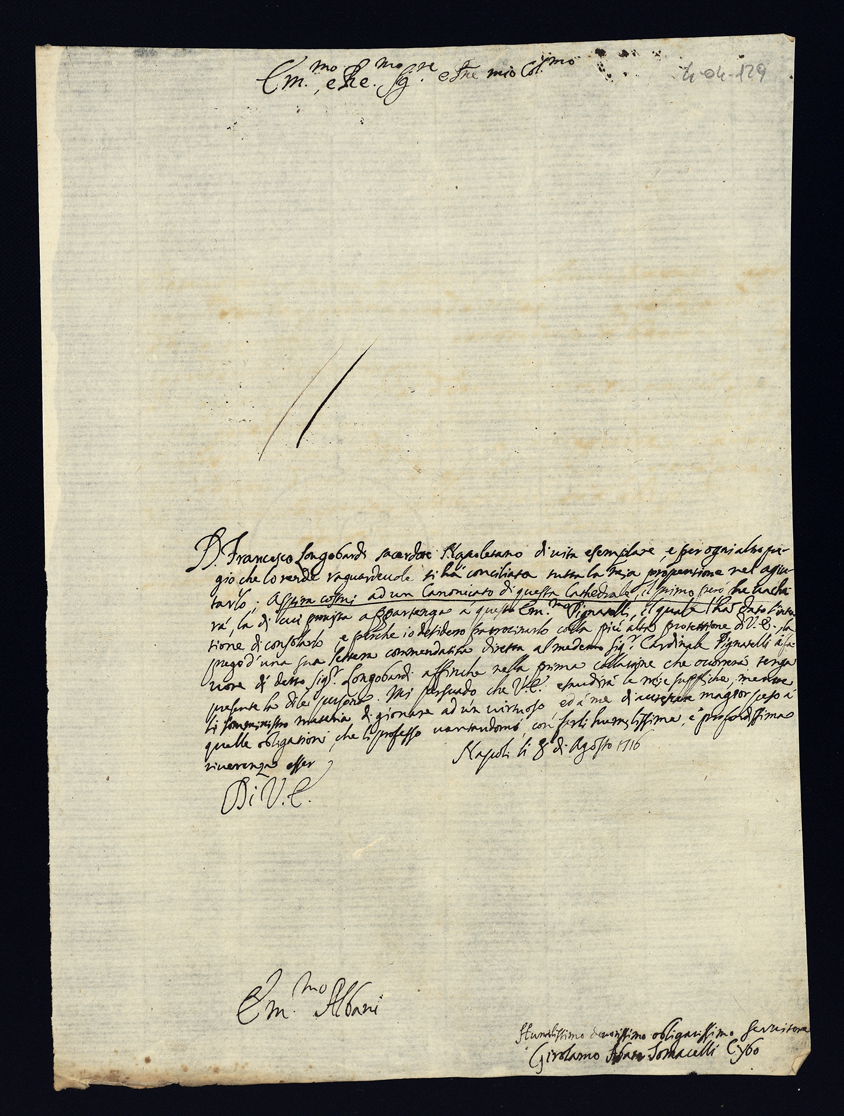 Em.mo, e Re.mo Sig.re e Pne mio Col.mo
4-04-129
D. Francesco Longobardi sacerdote Napoletano di vita esemplare, e per ogni altro pre-
gio che lo rende raguardevole si hà conciliata tutta la mia propensione nel agiu-
tarlo; Aspira costui ad un Canonicato di questa Cathedrale, il primo però, che vacha-
rà, la di cui provista appartenga a questo Em.mo Pignatelli, il quale hà dato
tione di consolarlo e perche io desidero patrocinarlo colla più alta protettione di V.E. la
prego d'una sua lettera commendatitia diretta al medemo Sig.r Cardinale Pignatelli à fa-
vore di detto Sig.r Longobardi affinche nella prima collatione che occorrerà tenga
presente la di lui persona. Mi persuado che V.E. esaudirà le mie suppliche, mentre
li somministro materia di giovare ad un virtuoso ed à me di accrescere maggior peso à
quelle obligationi, che li professo warrandomi, con farli humilissima, e profondissima
riverenza esser
Napoli li 8 di Agosto 1716
Di V.E.
Em.mo Albani
Humilissimo devotissimo obligatissimo Servitore
Girolamo Tomacelli Cybo